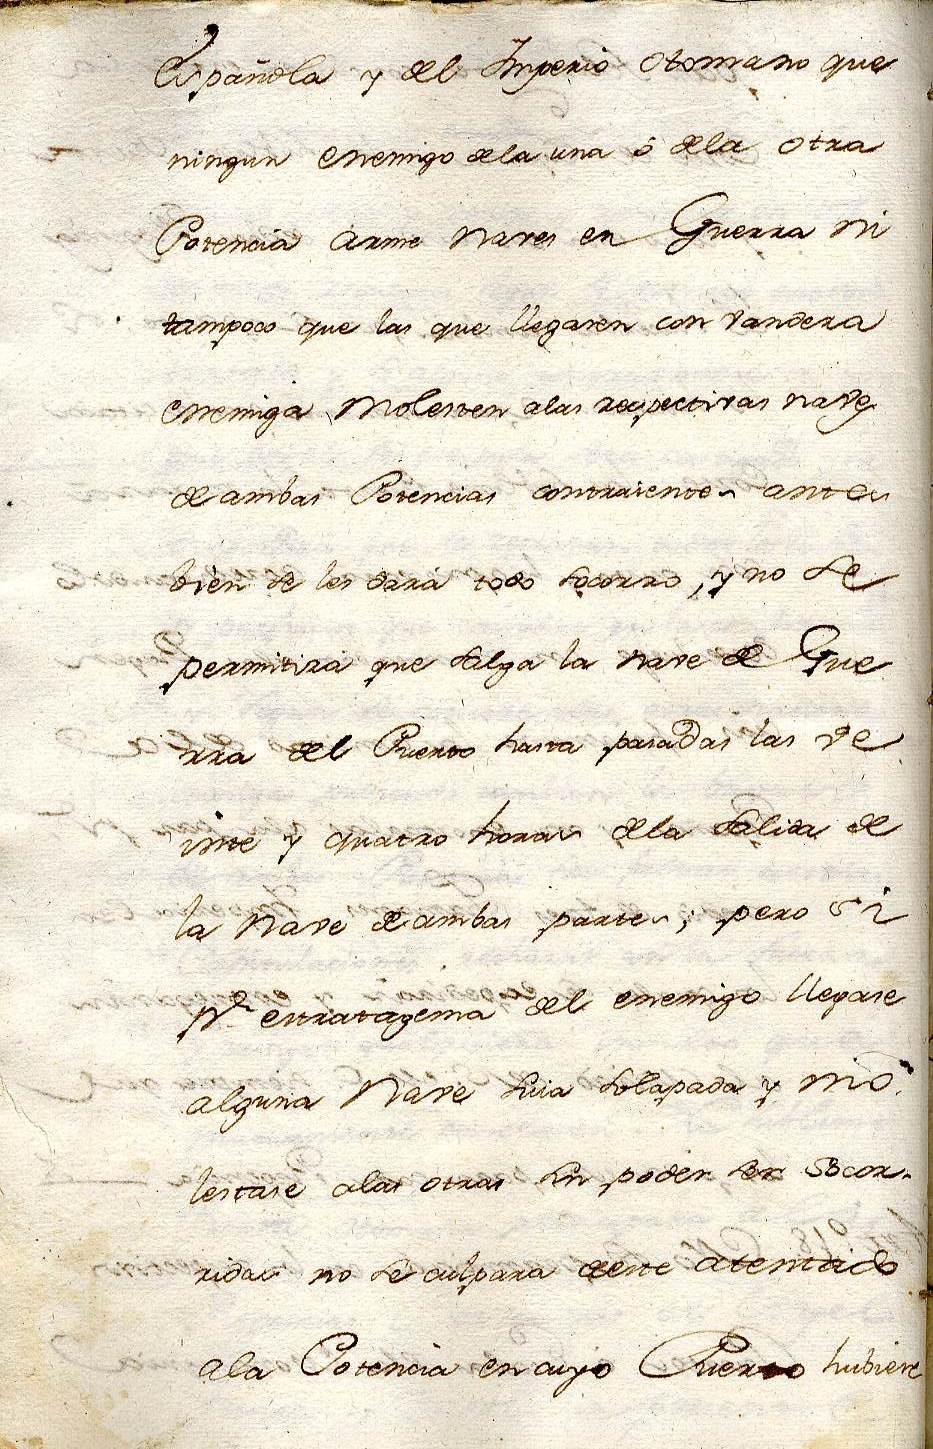 Española y del Imperio Otomano que
ningun enemigo dela una ó dela otra
Potencia arme naves en Guerra ni
tampoco que las que llegasen con vandera
enemiga molesten alas respectivas naves
de ambas Potencias contraientes antes
bien se les dará todo socorro, y no se
permitirá que salga la nave de Gue
rra del Puerto hasta pasadas las ve
inte y quatro horas dela salida de
la Nave de ambas partes; pero si
pr. estratagema del enemigo llegase
alguna Nave suia solapada y mo
lestase alas otras sin poder ser socor-
ridas no se culpara deste atentado
ala Potencia en cuyo Puerto hubiere